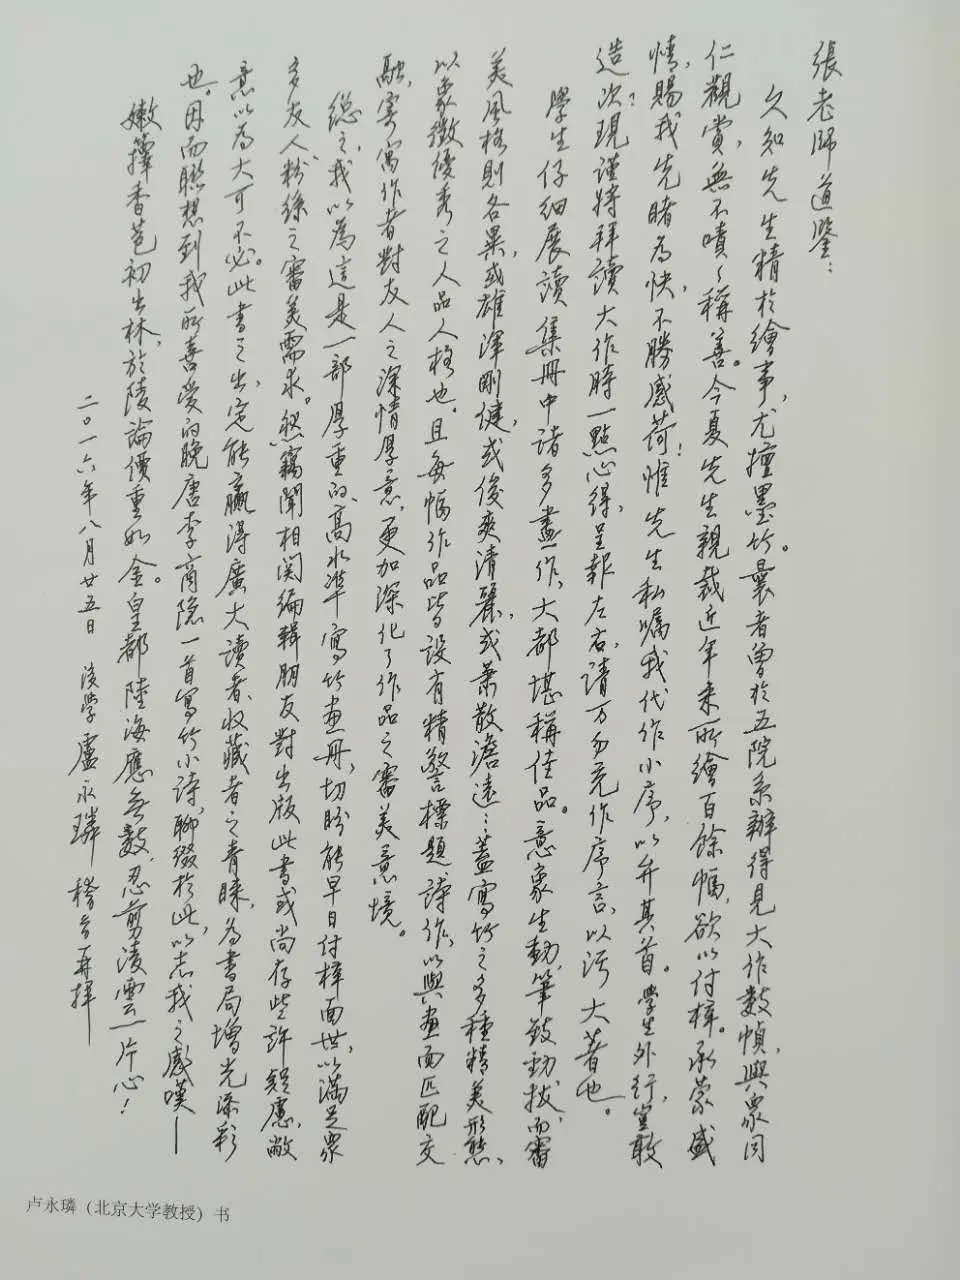 張老師道鑒：
久知先生精於繪事，尤擅墨竹。曩者曾於五院系辦得見大作數幀，與眾同
仁觀賞，無不嘖〻稱善。今夏先生親裁近年来所繪百餘幅，欲以付梓。承蒙盛
情，賜我先睹為快，不勝感荷！惟先生私囑我代作小序，以弁其首。學生外行，豈敢
造次？現謹將拜讀大作時一點心得，呈報左右，请万勿充作序言，以污大著也。
學生仔细展讀集冊中诸多畫作，大都堪稱佳品。意象生動，筆致勁拔，而審
美風格則各異，或雄渾剛健，或俊爽清麗，或萧散澹遠…蓋寫竹之多種精美形態，
以象徵優秀之人品人格也。且每幅作品皆设有精警標題、詩作，以與畫面匹配交
融，寄寓作者對友人之深情厚意，更加深化了作品之審美意境。
總之，我以為這是一部厚重的、高水準寫竹畫冊，切盼能早日付梓面世，以滿足眾
多友人粉絲之審美需求。然竊聞相関编輯朋友對出版此書或尚存些許疑慮，敝
意以為大可不必。此書之出，定能赢得廣大读者、收藏者之青睞，為書局增光添彩
也。因而聯想到我所喜爱的晚唐李商隐一首寫竹小詩，聊缀於此，以志我之感嘆——
嫩籜香苞初出林，於陵論價重如金。皇都陸海應無數，忍剪凌雲一片心！
二〇一六年八月廿五日 後學盧永璘 稽首再拜——
卢永璘（北京大学教授）书